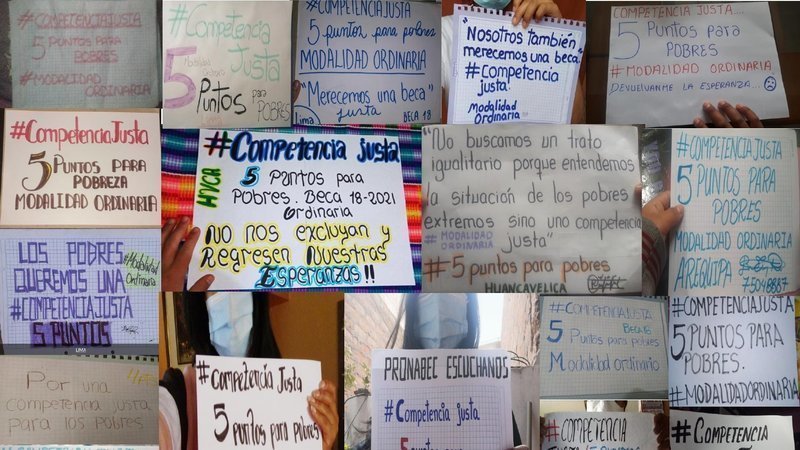 #COMPETENCIA JUSTA
5 PUNTOS PARA
POBRES
#MODALIDAD
ORDINARIA
#Competencia
Justa
5
Modalidad
Ordinaria
Puntos
para
Pobres
#COMPETENCIA JUSTA
5 puntos para pobres
MODALIDAD ORDINARIA
"Merecemos una beca"
justa
Lima
BECA 18
"Nosotros también
merecemos una beca"
#Competencia
justa
Modalidad
Ordinaria
COMPETENCIA JUSTA...
5 PUNTOS PARA
POBRES
#MODALIDAD ORDINARIA
DEVUELVANME LA ESPERANZA...
#COMPETENCIA JUSTA
5 PUNTOS PARA
POBREZA
MODALIDAD ORDINARIA
HVCA
#Competencia justa
5 Puntos para
Pobres. Beca 18-2021
Ordinaria
No nos excluyan y
Regresen Nuestras
Esperanzas!!
"No buscamos un trato
igualitario porque entendemos
la situación de los pobres
extremos sino una competencia
justa"
#MODALIDAD
ORDINARIA
#5 puntos para pobres
HUANCAVELICA
#COMPETENCIAJUSTA
5 PUNTOS PARA
POBRES
MODALIDAD ORDINARIA
AREQUIPA
LOS POBRES
QUEREMOS UNA
#COMPETENCIAJUSTA
5 PUNTOS
#Modalidad
Ordinaria
LIMA
Por una
competencia justa
para los pobres
#Competencia Justa
5 puntos para pobres
PRONABEC ESCUCHANOS
#Competencia justa
#COMPETENCIA JUSTA
BECA 18
5 Puntos para pobres
Modalidad ordinario
#COMPETENCIAJUSTA
5 PUNTOS PARA
POBRES.
#MODALIDADORDINARIA
#COMPETENCIA
#COMPETENCIA